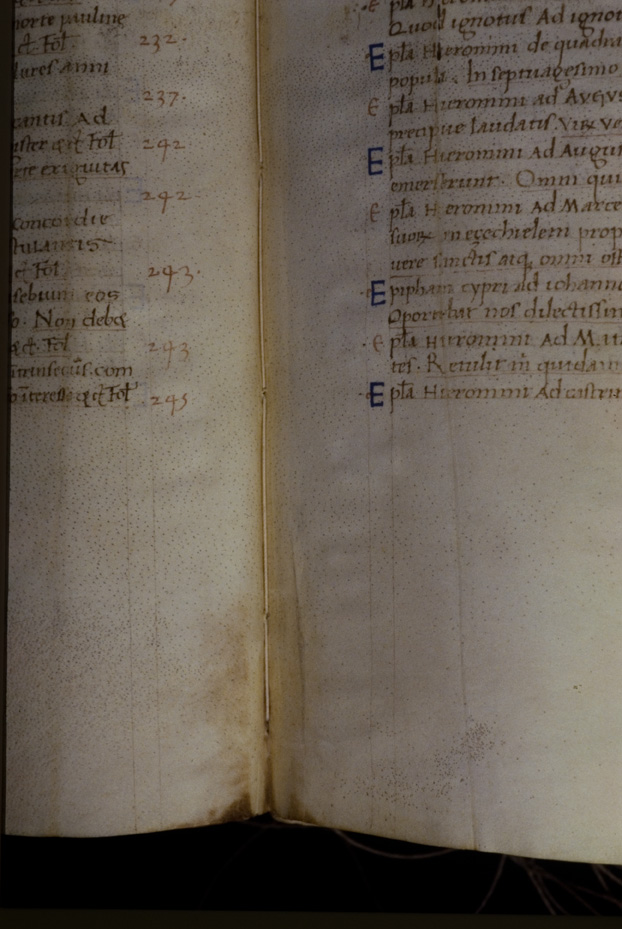 morte pauline
& Fol̄ 232.
plures anni
237.
cantis Ad
ister q̄ ē Fol̄ 242
erie exiguitas
242
concordie
stulantis
ē Fol̄ 243.
sebium eos
o. Non debeꝫ
q̄ ē. Fol̄ 243
intrinsecus. com
interesse q̄ ē Fol̄ 245
Quod ignotus Ad ignot
Epl̄a Hieronimi de quadra
populi. In septuagesimo
Epl̄a Hieronimi ad Avgvs
precipue laudatis. Virꝫ ve
Epl̄a Hieronimi Ad Augu
emerserunt. Omni qui
Epl̄a Hieronimi Ad Marce
suoꝝ in ezechielem prop
vere sanctis atq, omni oſ
Epiphani cypri ad iohann
Oportebat nos dilectissim
Epl̄a Hieronimi Ad M
tes. Retulit m̄ quidam
Epl̄a Hieronimi Ad castru